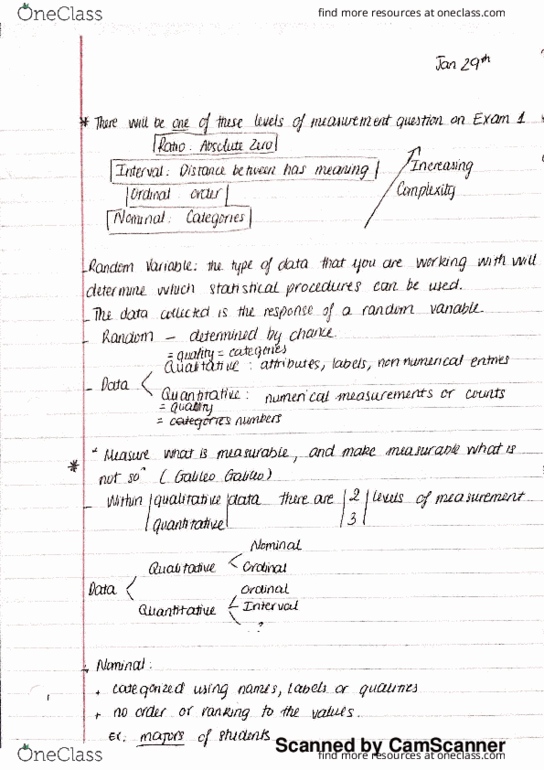 OneClass
find more resources at oneclass.com
Jan 29th
* There will be one of these levels of measurement question on Exam 1
Ratio: Absolute Zero
Interval: Distance between has meaning
Increasing
Ordinal: order
Complexity
Nominal: Categories
- Random Variable: the type of data that you are working with will
determine which statistical procedures can be used.
- The data collected is the response of a random variable.
- Random - determined by chance.
= quality = categories
Qualitative: attributes, labels, non numerical entries
- Data <
Quantitative: numerical measurements or counts
= quality
= categories numbers
* "Measure what is measurable, and make measurable what is
not so" (Galileo Galileo)
- Within qualitative data there are 2 levels of measurement
quantitative 3
Nominal
Qualitative < Ordinal
Data <
Ordinal
Quantitative < Interval
?
Nominal:
+ categorized using names, labels or qualities
+ no order or ranking to the values.
Ex. majors of students
Scanned by CamScanner
OneClass
find more resources at oneclass.com